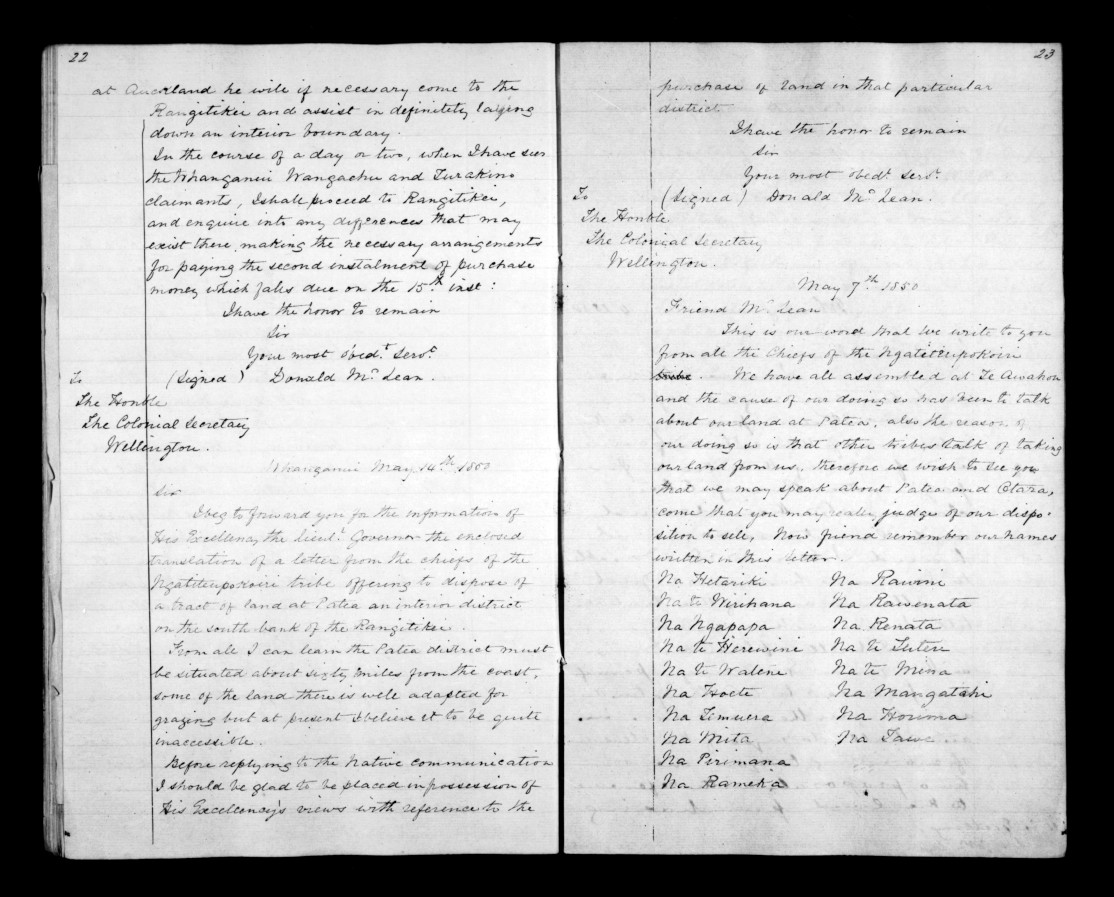 22
at Auckland he will if necessary come to the
Rangitikei and assist in definitely laying
down an interior boundary.
In the course of a day or two, when I have seen
the Whanganui Wangaehu and Turakino
claimants, I shall proceed to Rangitikei,
and enquire into any differences that may
exist there, making the necessary arrangements
for paying the second instalment of purchase
money which falls due on the 15th inst:
I have the honor to remain
Sir
Your most obedt. Servt.
To (Signed) Donald McLean.
The Honble
The Colonial Secretary
Wellington.
Whanganui May 14th 1850
Sir
I beg to forward you for the information of
His Excellency the Lieut. Governor the enclosed
translation of a letter from the chiefs of the
Ngatiteupokoiri tribe offering to dispose of
a tract of land at Patea an interior district
on the south bank of the Rangitikei.
From all I can learn the Patea district must
be situated about sixty miles from the coast,
some of the land there is well adapted for
grazing but at present I believe it to be quite
inaccessible.
Before replying to the Native communication
I should be glad to be placed in possession of
His Excellency's views with reference to the
23
purchase of land in that particular
district
I have the honor to remain
Sir
Your most obedt. Servt.
To (Signed) Donald McLean.
The Honble
The Colonial Secretary
Wellington.
May 7th 1850
Friend McLean
This is our word that we write to you
from all the Chiefs of the Ngatiteupokoiri
tribe. We have all assembled at Te Awahou
and the cause of our doing so has been to talk
about our land at Patea, also the reason of
our doing so is that other tribes talk of taking
our land from us, therefore we wish to see you
that we may speak about Patea and Otara,
come that you may judge of our dispo-
sition to sell, Now friend remember our names
written in this letter.
Na Hetariki Na Rawini
Na te Wirihana Na Rawenata
Na Ngapapa Na Renata
Na te Herewini Na te Tuteru
Na te Waleni Na te Mina
Na Hoete Na Mangatahi
Na Temuera Na Houma
Na Mita Na Tawe
Na Pirimana
Na Rameka